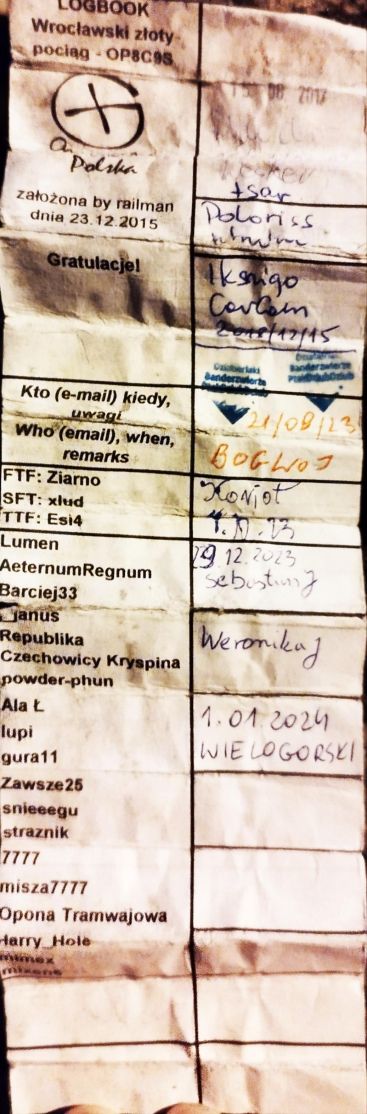 LOGBOOK
Wrocławski złoty
pociąg - OP8C9S
Polska
założona by railman
dnia 23.12.2015
Gratulacje!
Kto (e-mail) kiedy,
uwagi
Who (email), when,
remarks
FTF: Ziarno
SFT: xlud
TTF: Esi4
Lumen
AeternumRegnum
Barciej33
Janus
Republika
Czechowicy Kryspina
powder-phun
Ala Ł
lupi
gura11
Zawsze25
snieeegu
straznik
7777
misza7777
Opona Tramwajowa
Harry_Hole
mimex
08 2017
tsar
Iksnigo
2018/12/15
Banderzwierze
21/08/23
BOGWOJ
29.12.2023
Sebastian J
Weronika J
1.01.2024
WIELOGORSKI